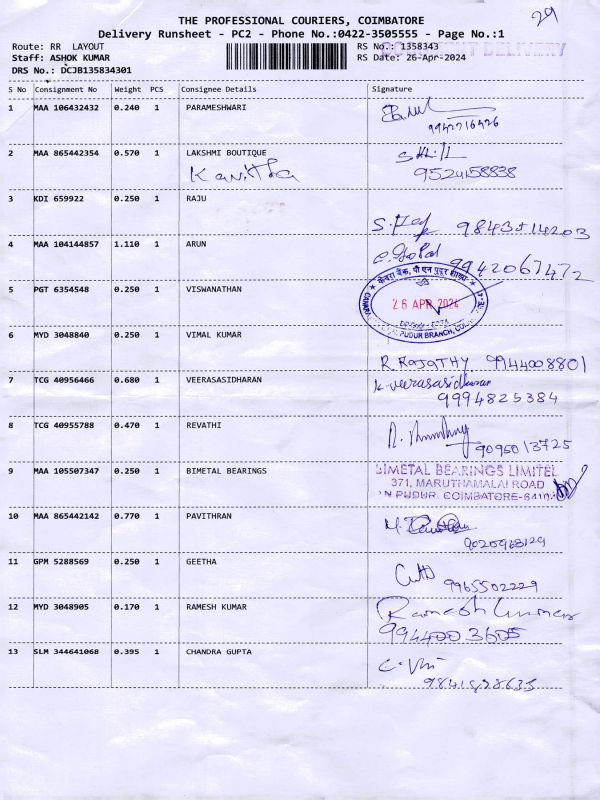 29
THE PROFESSIONAL COURIERS, COIMBATORE
Delivery Runsheet - PC2 - Phone No.:0422-3505555 - Page No.:1
Route: RR LAYOUT
Staff: ASHOK KUMAR
DRS No.: DCJB135834301
RS No.: 1358343
DELIVERY
RS Date: 26-Apr-2024
S No Consignment No Weight PCS Consignee Details Signature
1 MAA 106432432 0.240 1 PARAMESHWARI
9942716426
2 MAA 865442354 0.570 1 LAKSHMI BOUTIQUE
Kavitha
9524158838
3 KDI 659922 0.250 1 RAJU
9843514203
4 MAA 104144857 1.110 1 ARUN
9942067472
5 PGT 6354548 0.250 1 VISWANATHAN
केनरा बैंक, पी एन पुदूर शाखा
26 APR 2024
PUDUR BRANCH, COI
6 MYD 3048840 0.250 1 VIMAL KUMAR
R. RAJATHY 9944008801
7 TCG 40956466 0.680 1 VEERASASIDHARAN
K. veerasasidharan
9994825384
8 TCG 40955788 0.470 1 REVATHI
9095013725
9 MAA 105507347 0.250 1 BIMETAL BEARINGS
BIMETAL BEARINGS LIMITED
371, MARUTHAMALAI ROAD
N PUDUR, COIMBATORE-6410
10 MAA 865442142 0.770 1 PAVITHRAN
9025968129
11 GPM 5288569 0.250 1 GEETHA
9965502229
12 MYD 3048905 0.170 1 RAMESH KUMAR
Ramesh Kumar
9944003605
13 SLM 344641068 0.395 1 CHANDRA GUPTA